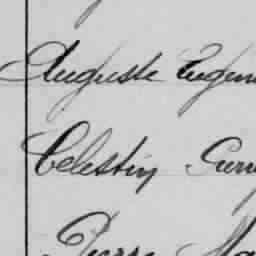 Auguste Eugen
Celestin
Pierre Ma